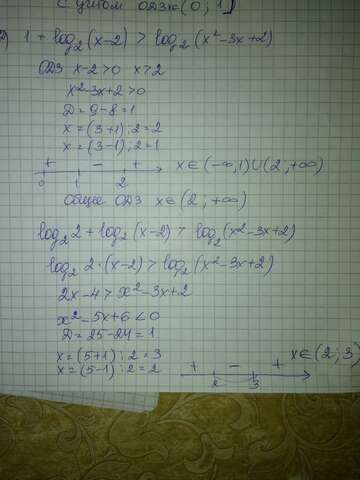 с учётом ОДЗ x∈(0;1]
1 + log₂(x-2) > log₂(x²-3x+2)
ОДЗ x-2>0 x>2
x²-3x+2>0
D=9-8=1
x=(3+1):2=2
x=(3-1):2=1
+ - +
0 1 2
x∈(-∞,1)∪(2,+∞)
Общее ОДЗ x∈(2,+∞)
log₂2+log₂(x-2) > log₂(x²-3x+2)
log₂2·(x-2) > log₂(x²-3x+2)
2x-4 > x²-3x+2
x²-5x+6<0
D=25-24=1
x=(5+1):2=3
x=(5-1):2=2
+ - +
2 3
x∈(2;3)